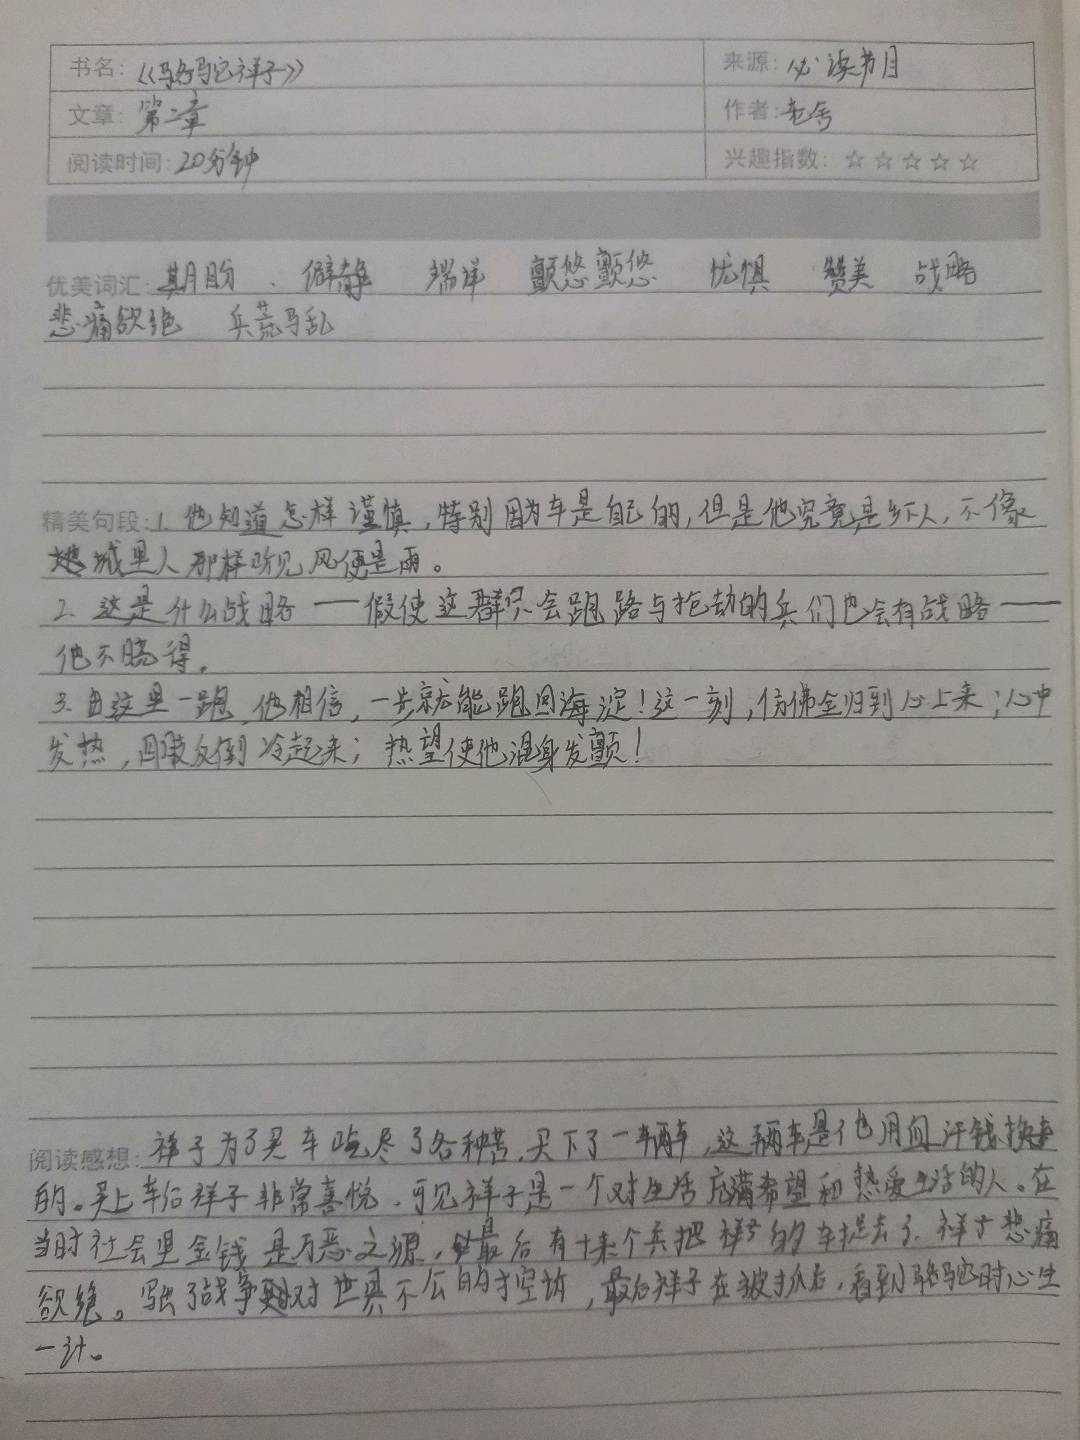 书名：《骆驼祥子》 来源：必读书目
文章：第二章 作者：老舍
阅读时间：20分钟 兴趣指数：☆☆☆☆☆
优美词汇：期盼 僻静 端详 颤悠颤悠 忧惧 赞美 战略
悲痛欲绝 兵荒马乱
精美句段：1. 他知道怎样谨慎，特别因为车是自己的，但是他究竟是乡下人，不像
城里人那样听见风便是雨。
2. 这是什么战略——假使这群只会跑路与抢劫的兵们也会有战略——
他不晓得。
3. 由这里一跑，他相信，一步就能跑回海淀！这一刻，仿佛全归到心上来；心中
发热，四肢反倒冷起来；热望使他混身发颤！
阅读感想：祥子为了买车吃尽了各种苦，买下了一辆车，这辆车是他用血汗钱换来
的。买上车后祥子非常喜悦，可见祥子是一个对生活充满希望和热爱生活的人。在
当时社会里金钱是万恶之源，最后有十来个兵把祥子的车抢去了，祥子悲痛
欲绝。写出了战争对世界不公的控诉，最后祥子在被抓后，看到骆驼时心生
一计。